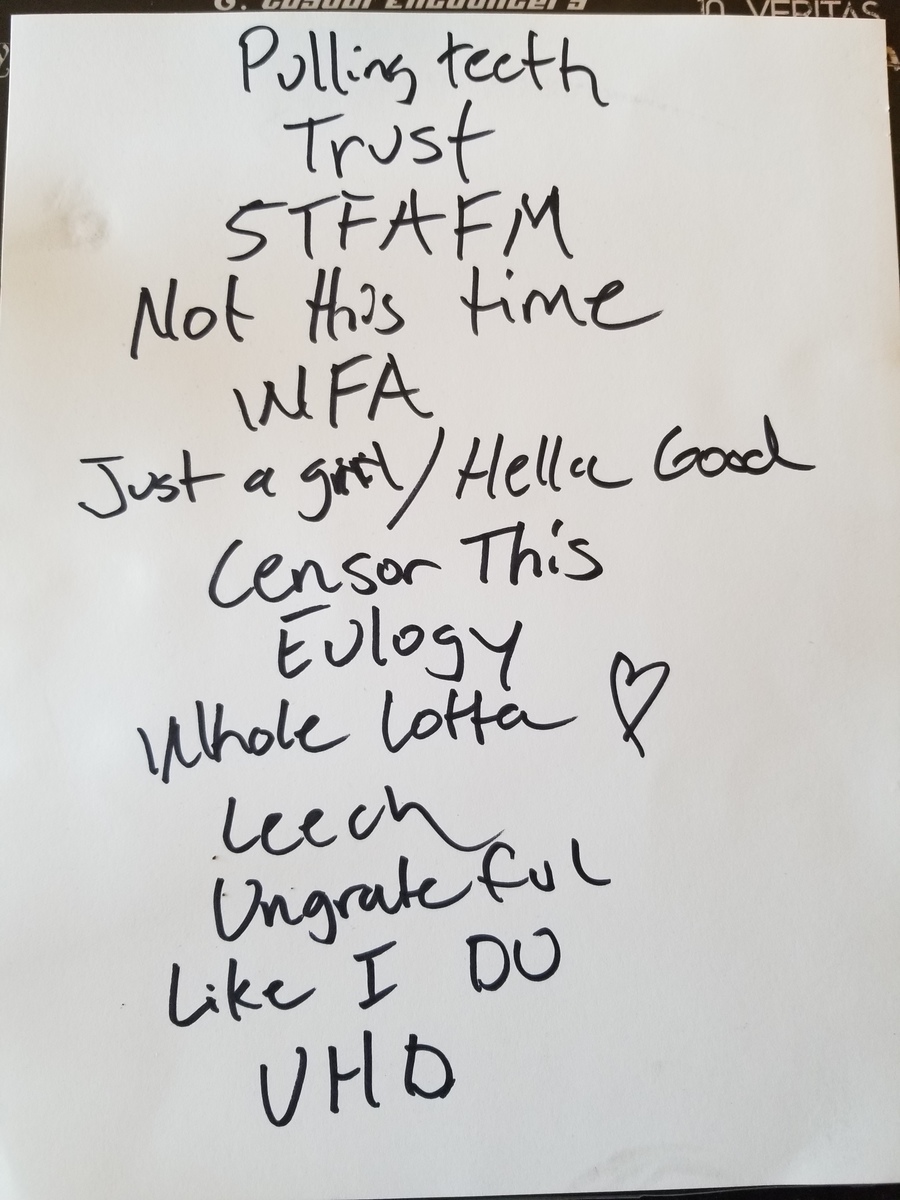 6. Casual Encounters 10. VERITAS
Pulling teeth
Trust
STFAFM
Not this time
WFA
Just a girl / Hella Good
Censor This
Eulogy
Whole Lotta ♡
Leech
Ungrateful
Like I DO
UHD